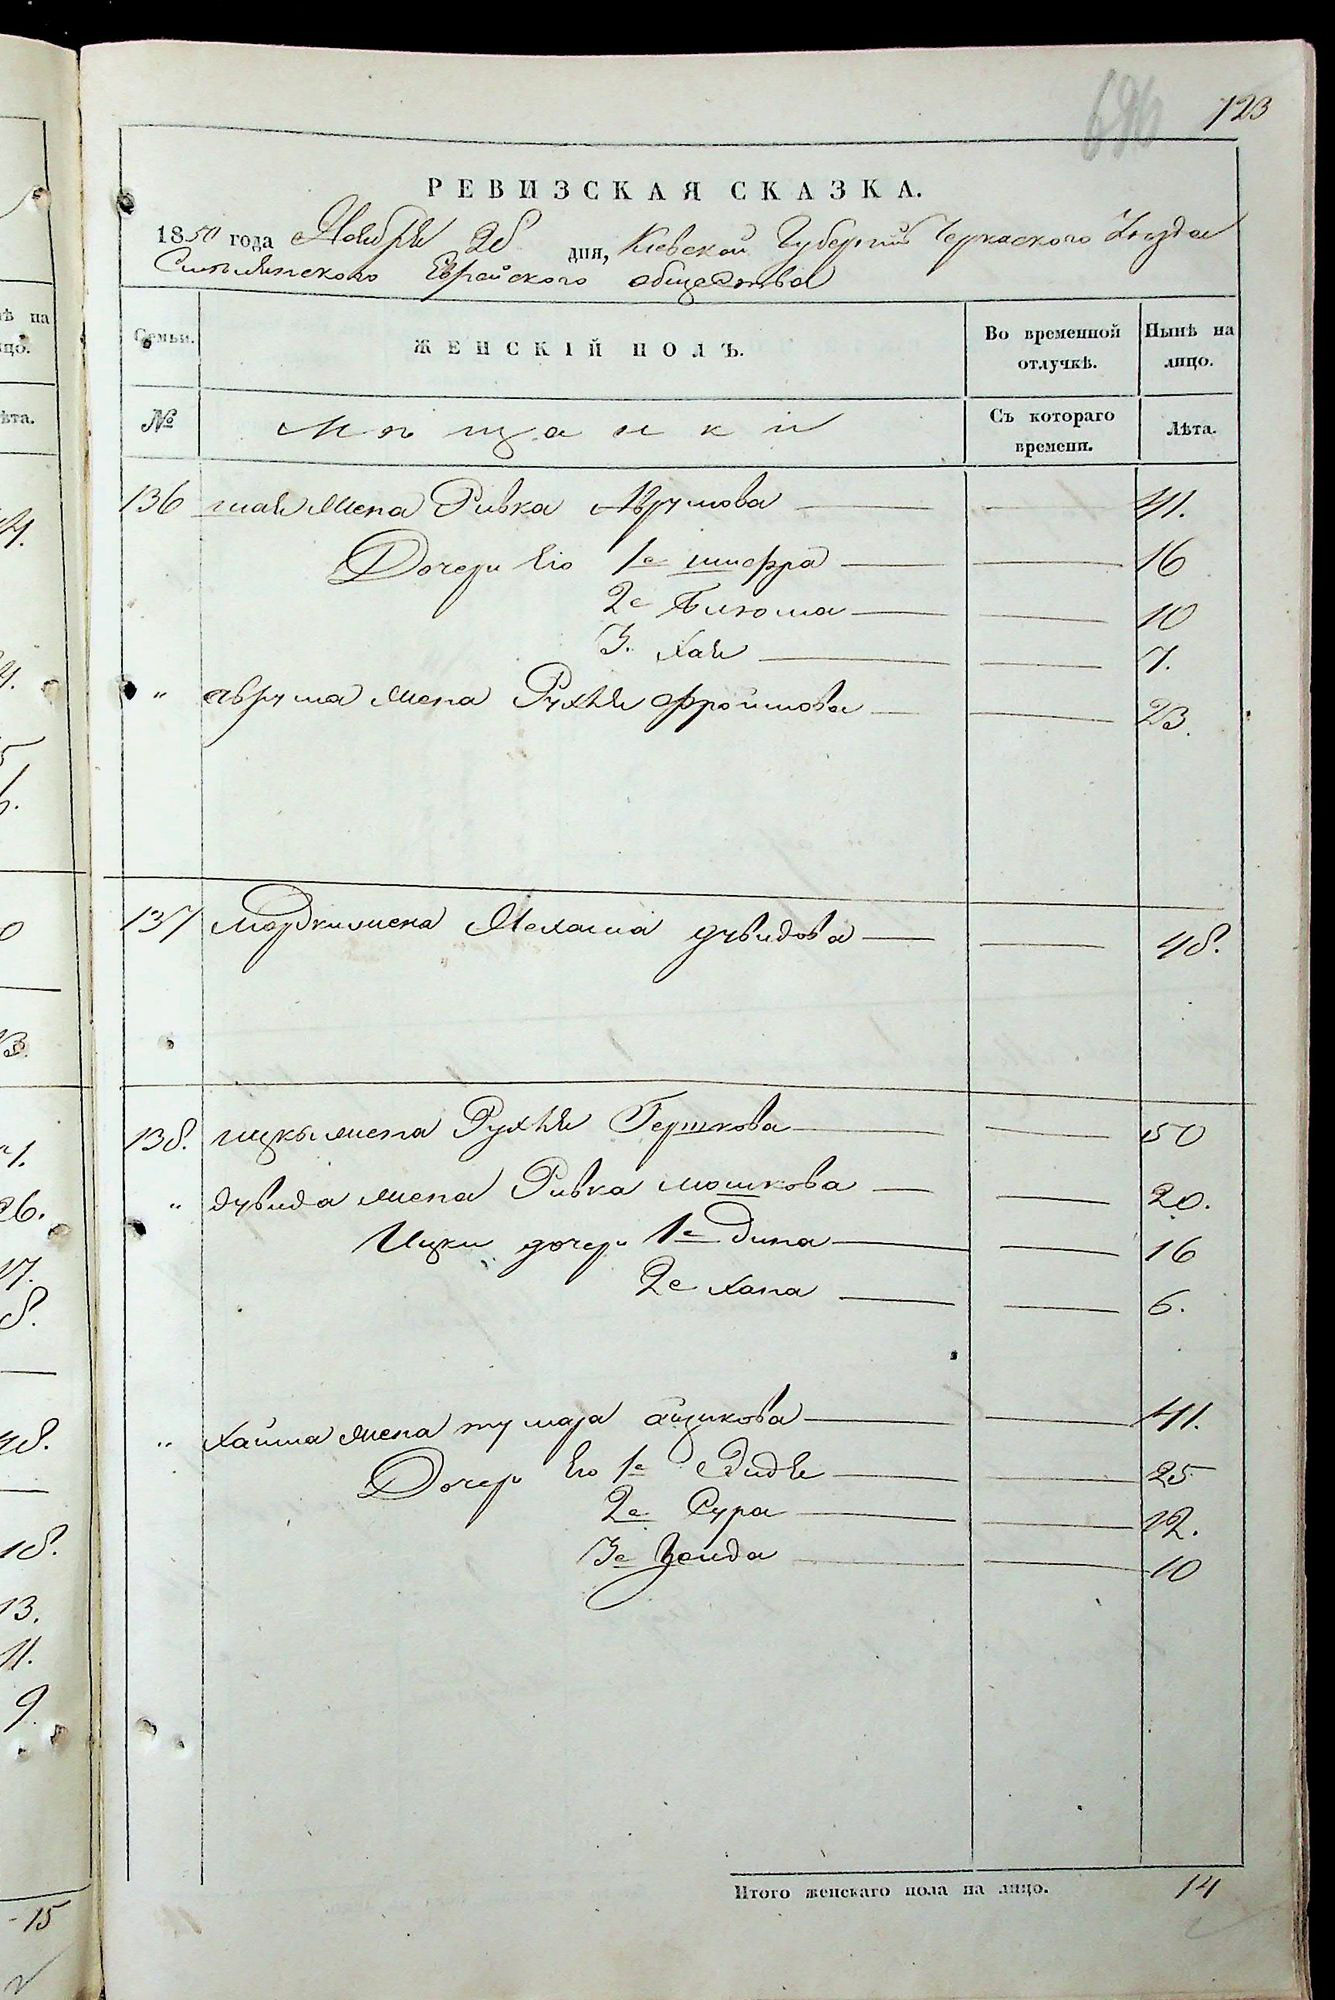 696
123
РЕВИЗСКАЯ СКАЗКА.
1850 года Ноября 28 дня, Киевской Губернии Черкаского Уезда
Смелянского Еврейского общества
Семьи. ЖЕНСКІЙ ПОЛЪ. Во временной отлучкѣ. Нынѣ на лицо.
№ Мѣщанки Съ котораго времени. Лѣта.
136 жена Ривка Аврумова 41.
Дочери Его 1е шифра 16
2е 10
3. Хая 7.
" аврума жена Рухля фроимова 23.
137 мордки жена дувидова 48.
138. ицки жена Рухля Гершкова 50
" дувида жена Ривка мошкова 20.
Ицки дочери 1е Дина 16
2е хана 6.
" хаима жена айзикова 41.
Дочери Его 1е 25
2е Сура 12.
3е 10
Итого женскаго пола на лицо. 14
4.
5
26.
17.
8.
48.
18.
13.
11.
9.
15